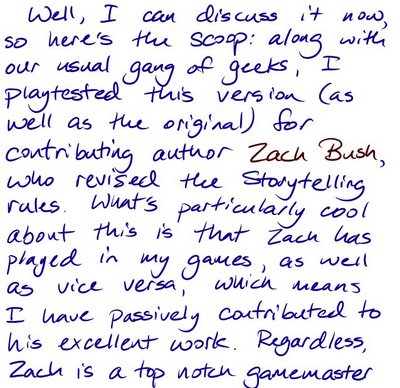 Well, I can discuss it now,
so here's the scoop: along with
our usual gang of geeks, I
playtested this version (as
well as the original) for
contributing author Zach Bush,
who revised the Storytelling
rules. What's particularly cool
about this is that Zach has
played in my games, as well
as vice versa, which means
I have passively contributed to
his excellent work. Regardless,
Zach is a top notch gamemaster